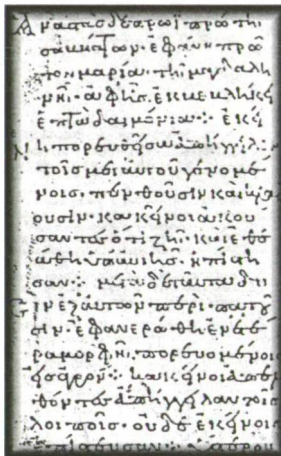 Ἀναστὰς δὲ πρωῒ πρώτη
σαββάτων· ἐφάνη πρῶ
τον μαρία τῆ μαγδαλη
νῆ· ἀφ' ἧς ἐκβεβλήκει
ἑπτὰ δαιμόνια· ἐκεί
νη πορευθεῖσα ἀπήγγειλε
τοῖς μετ' αὐτοῦ γενομέ
νοις· πενθοῦσιν καὶ κλαί
ουσιν· κακεῖνοι ἀκού
σαντες ὅτι ζῆ· καὶ ἐθε
άθη ὑπ' αὐτῆς ἠπίστη
σαν· μετὰ δὲ ταῦτα δυ
σὶν ἐξ αὐτῶν περιπατοῦ
σιν· ἐφανερώθη ἐν ἑτέ
ρα μορφῆ· πορευομένοις
εἰς ἀγρόν· κακεῖνοι ἀπελ
θόντες ἀπήγγειλαν τοῖς
λοιποῖς· οὐδὲ ἐκείνοις
ἐπίστευσαν· ὕστερον